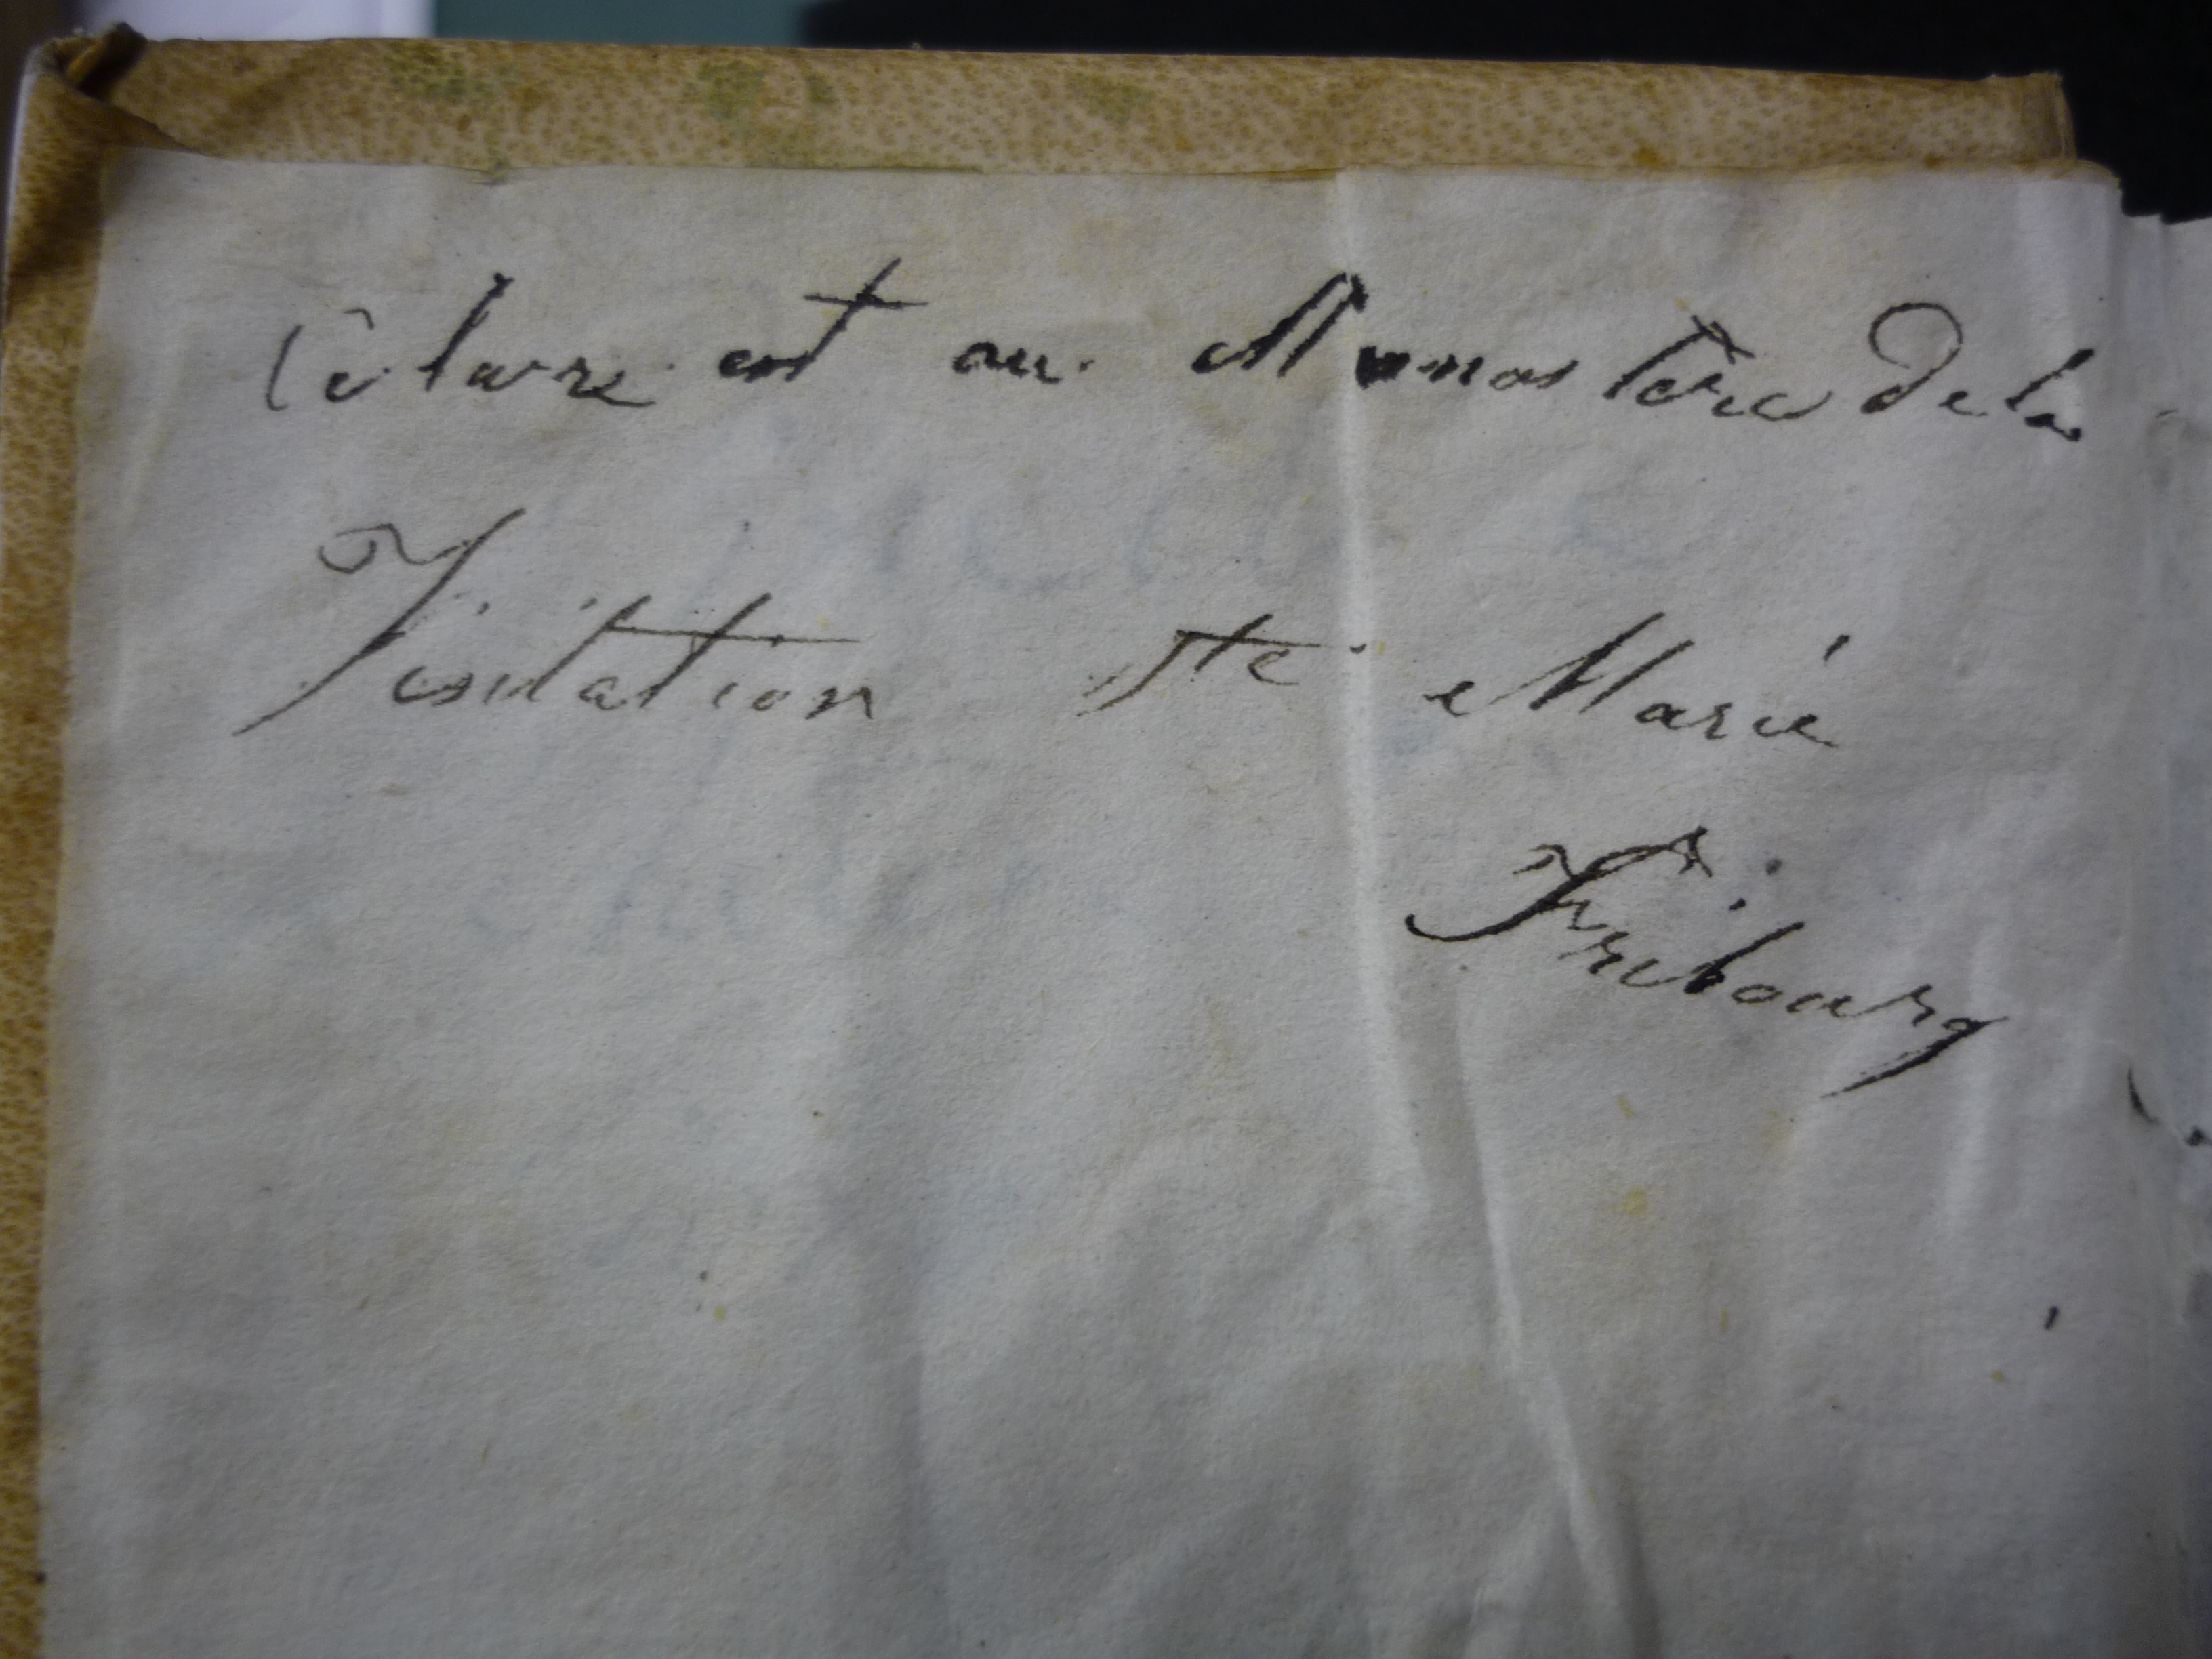 Ce livre est au Monastere de la
Visitation Ste Marie
Fribourg